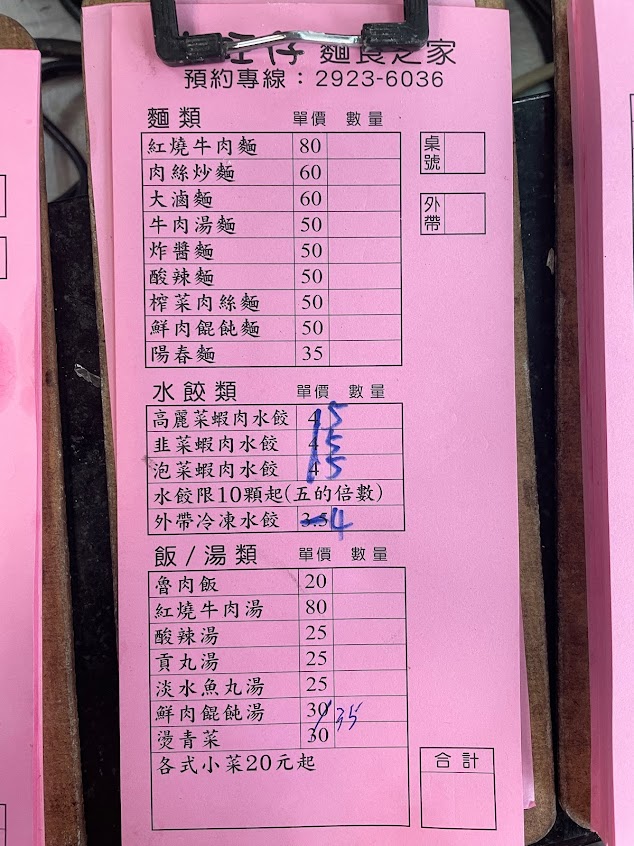 麵食之家
預約專線：2923-6036
麵類 單價 數量
紅燒牛肉麵 80
肉絲炒麵 60
大滷麵 60
牛肉湯麵 50
炸醬麵 50
酸辣麵 50
榨菜肉絲麵 50
鮮肉餛飩麵 50
陽春麵 35
桌號
外帶
水餃類 單價 數量
高麗菜蝦肉水餃 4 5
韭菜蝦肉水餃 4 5
泡菜蝦肉水餃 4 5
水餃限10顆起(五的倍數)
外帶冷凍水餃 3.5 4
飯/湯類 單價 數量
魯肉飯 20
紅燒牛肉湯 80
酸辣湯 25
貢丸湯 25
淡水魚丸湯 25
鮮肉餛飩湯 30 35
燙青菜 30
各式小菜20元起
合計